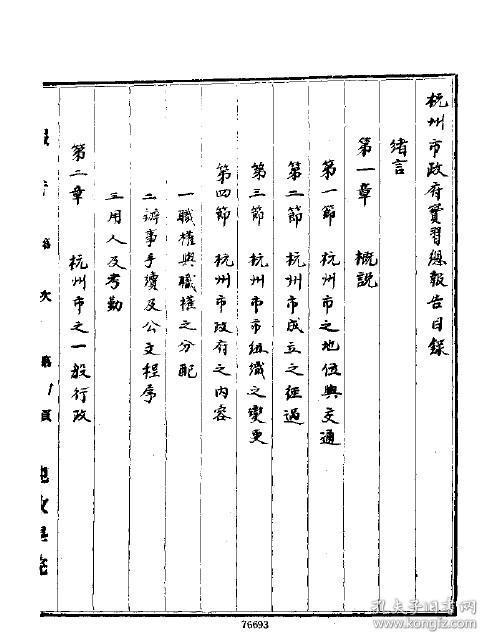 杭州市政府實習總報告目錄
緒言
第一章 概説
第一節 杭州市之地位與交通
第二節 杭州市成立之經過
第三節 杭州市市組織之變更
第四節 杭州市政府之內容
一職權與職權之分配
二辦事手續及公文程序
三用人及考勤
第二章 杭州市之一般行政
第1頁
76693
孔夫子旧书网